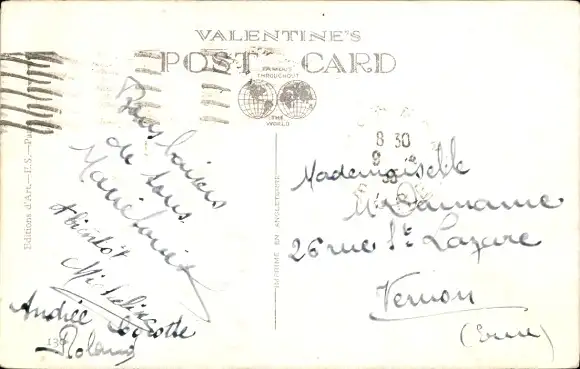 VALENTINE'S
POST CARD
FAMOUS
THROUGHOUT
THE
WORLD
8 30
9
Bons baisers
de tous
A bientôt
Micheline
Andrée Cocotte
Roland
Mademoiselle
26 rue St Lazare
Vernon
(Eure)
IMPRIMÉ EN ANGLETERRE
Editions d'Art.—E.S.—Pa